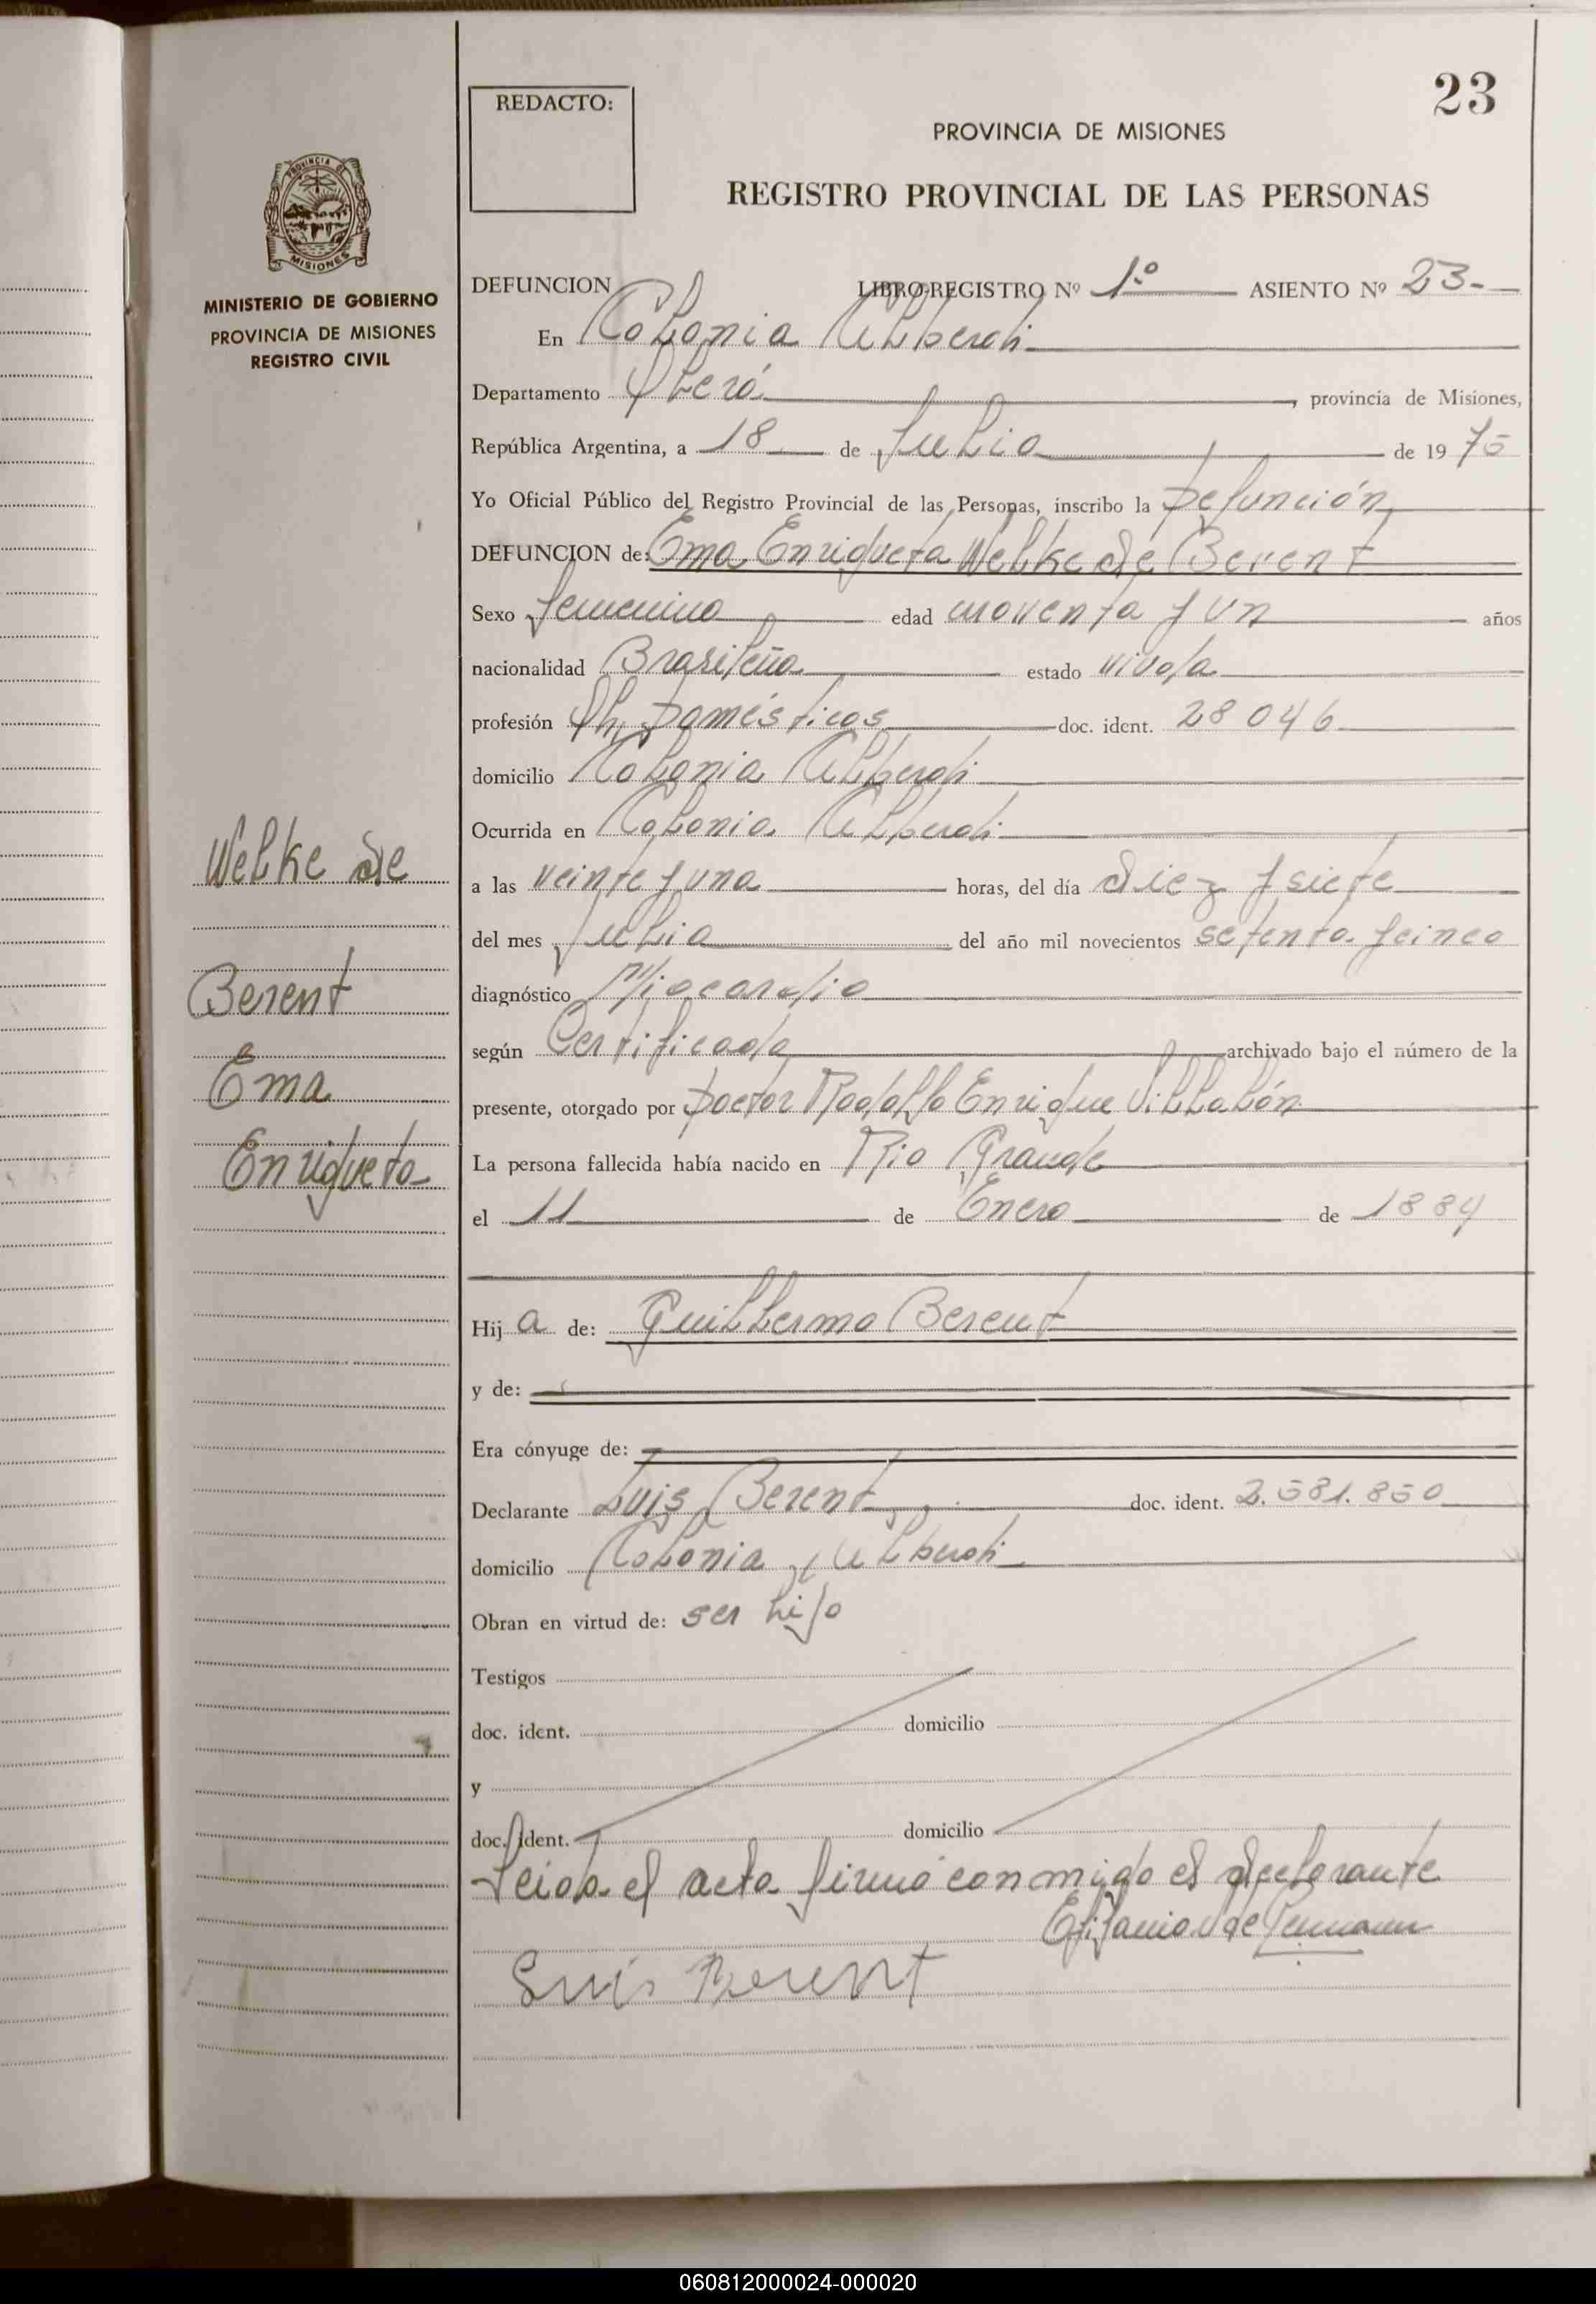 23
REDACTO:
PROVINCIA DE MISIONES
REGISTRO PROVINCIAL DE LAS PERSONAS
PROVINCIA DE
MISIONES
MINISTERIO DE GOBIERNO
PROVINCIA DE MISIONES
REGISTRO CIVIL
DEFUNCION LIBRO-REGISTRO Nº 1º ASIENTO Nº 23-
En Colonia Alberdi
Departamento Oberá, provincia de Misiones,
República Argentina, a 18 de Julio de 1975
Yo Oficial Público del Registro Provincial de las Personas, inscribo la Defunción
DEFUNCION de: Ema Enriqueta Welke de Berent
Sexo femenino edad noventa y un años
nacionalidad Brasileña estado viuda
profesión Qh. Domésticos doc. ident. 28046
domicilio Colonia Alberdi
Ocurrida en Colonia Alberdi
a las veinte y una horas, del día diez y siete
del mes Julio del año mil novecientos setenta y cinco
diagnóstico Miocardio
según Certificado archivado bajo el número de la
presente, otorgado por Doctor Rodolfo Enrique Villalón
La persona fallecida había nacido en Rio Grande
el 11 de Enero de 1884
Hij a de: Guillermo Berent
y de:
Era cónyuge de:
Declarante Luis Berent doc. ident. 2.581.850
domicilio Colonia Alberdi
Obran en virtud de: ser hijo
Testigos
doc. ident. domicilio
y
doc. ident. domicilio
Leida el acta firmó conmigo el declarante
Luis Berent
Welke de
Berent
Ema
Enriqueta
060812000024-000020